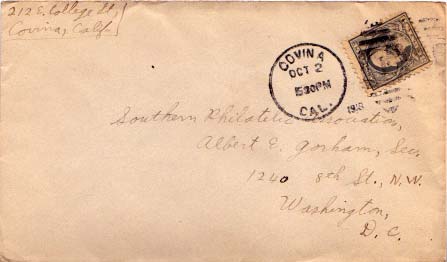 212 E. College St.,
Covina, Calif.
COVINA
OCT 2
530PM
CAL.
Southern Philatelic Association,
Albert E. Gorham, Sec.
1240 8th St., N.W.
Washington,
D. C.